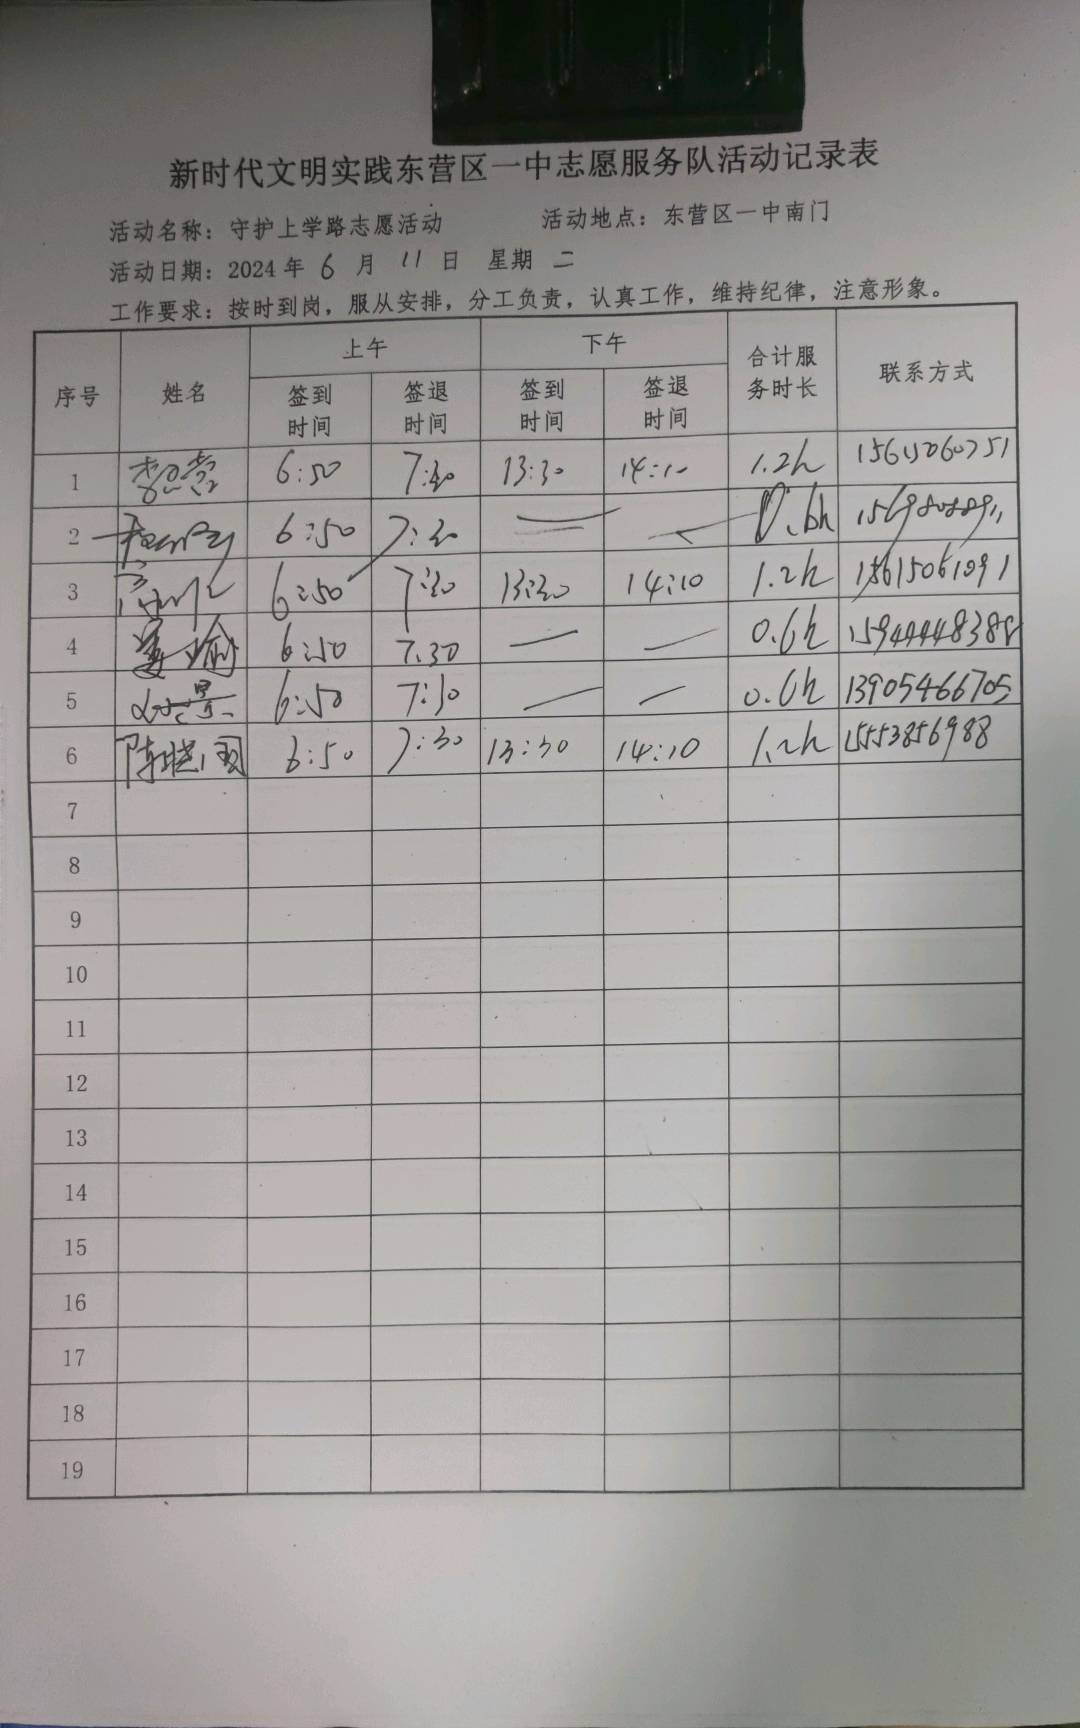 新时代文明实践东营区一中志愿服务队活动记录表
活动名称：守护上学路志愿活动 活动地点：东营区一中南门
活动日期：2024年 6 月 11 日 星期 二
工作要求：按时到岗，服从安排，分工负责，认真工作，维持纪律，注意形象。
序号 姓名 上午 下午 合计服务时长 联系方式
签到时间 签退时间 签到时间 签退时间
1 6:50 7:30 13:30 14:10 1.2h
2 6:50 7:30 — — 0.6h
3 6:50 7:30 13:30 14:10 1.2h 15615061091
4 姜瑜 6:50 7.30 — — 0.6h
5 6:50 7:30 — — 0.6h 13905466705
6 陈晓国 6:50 7:30 13:30 14:10 1.2h 15553856988
7
8
9
10
11
12
13
14
15
16
17
18
19